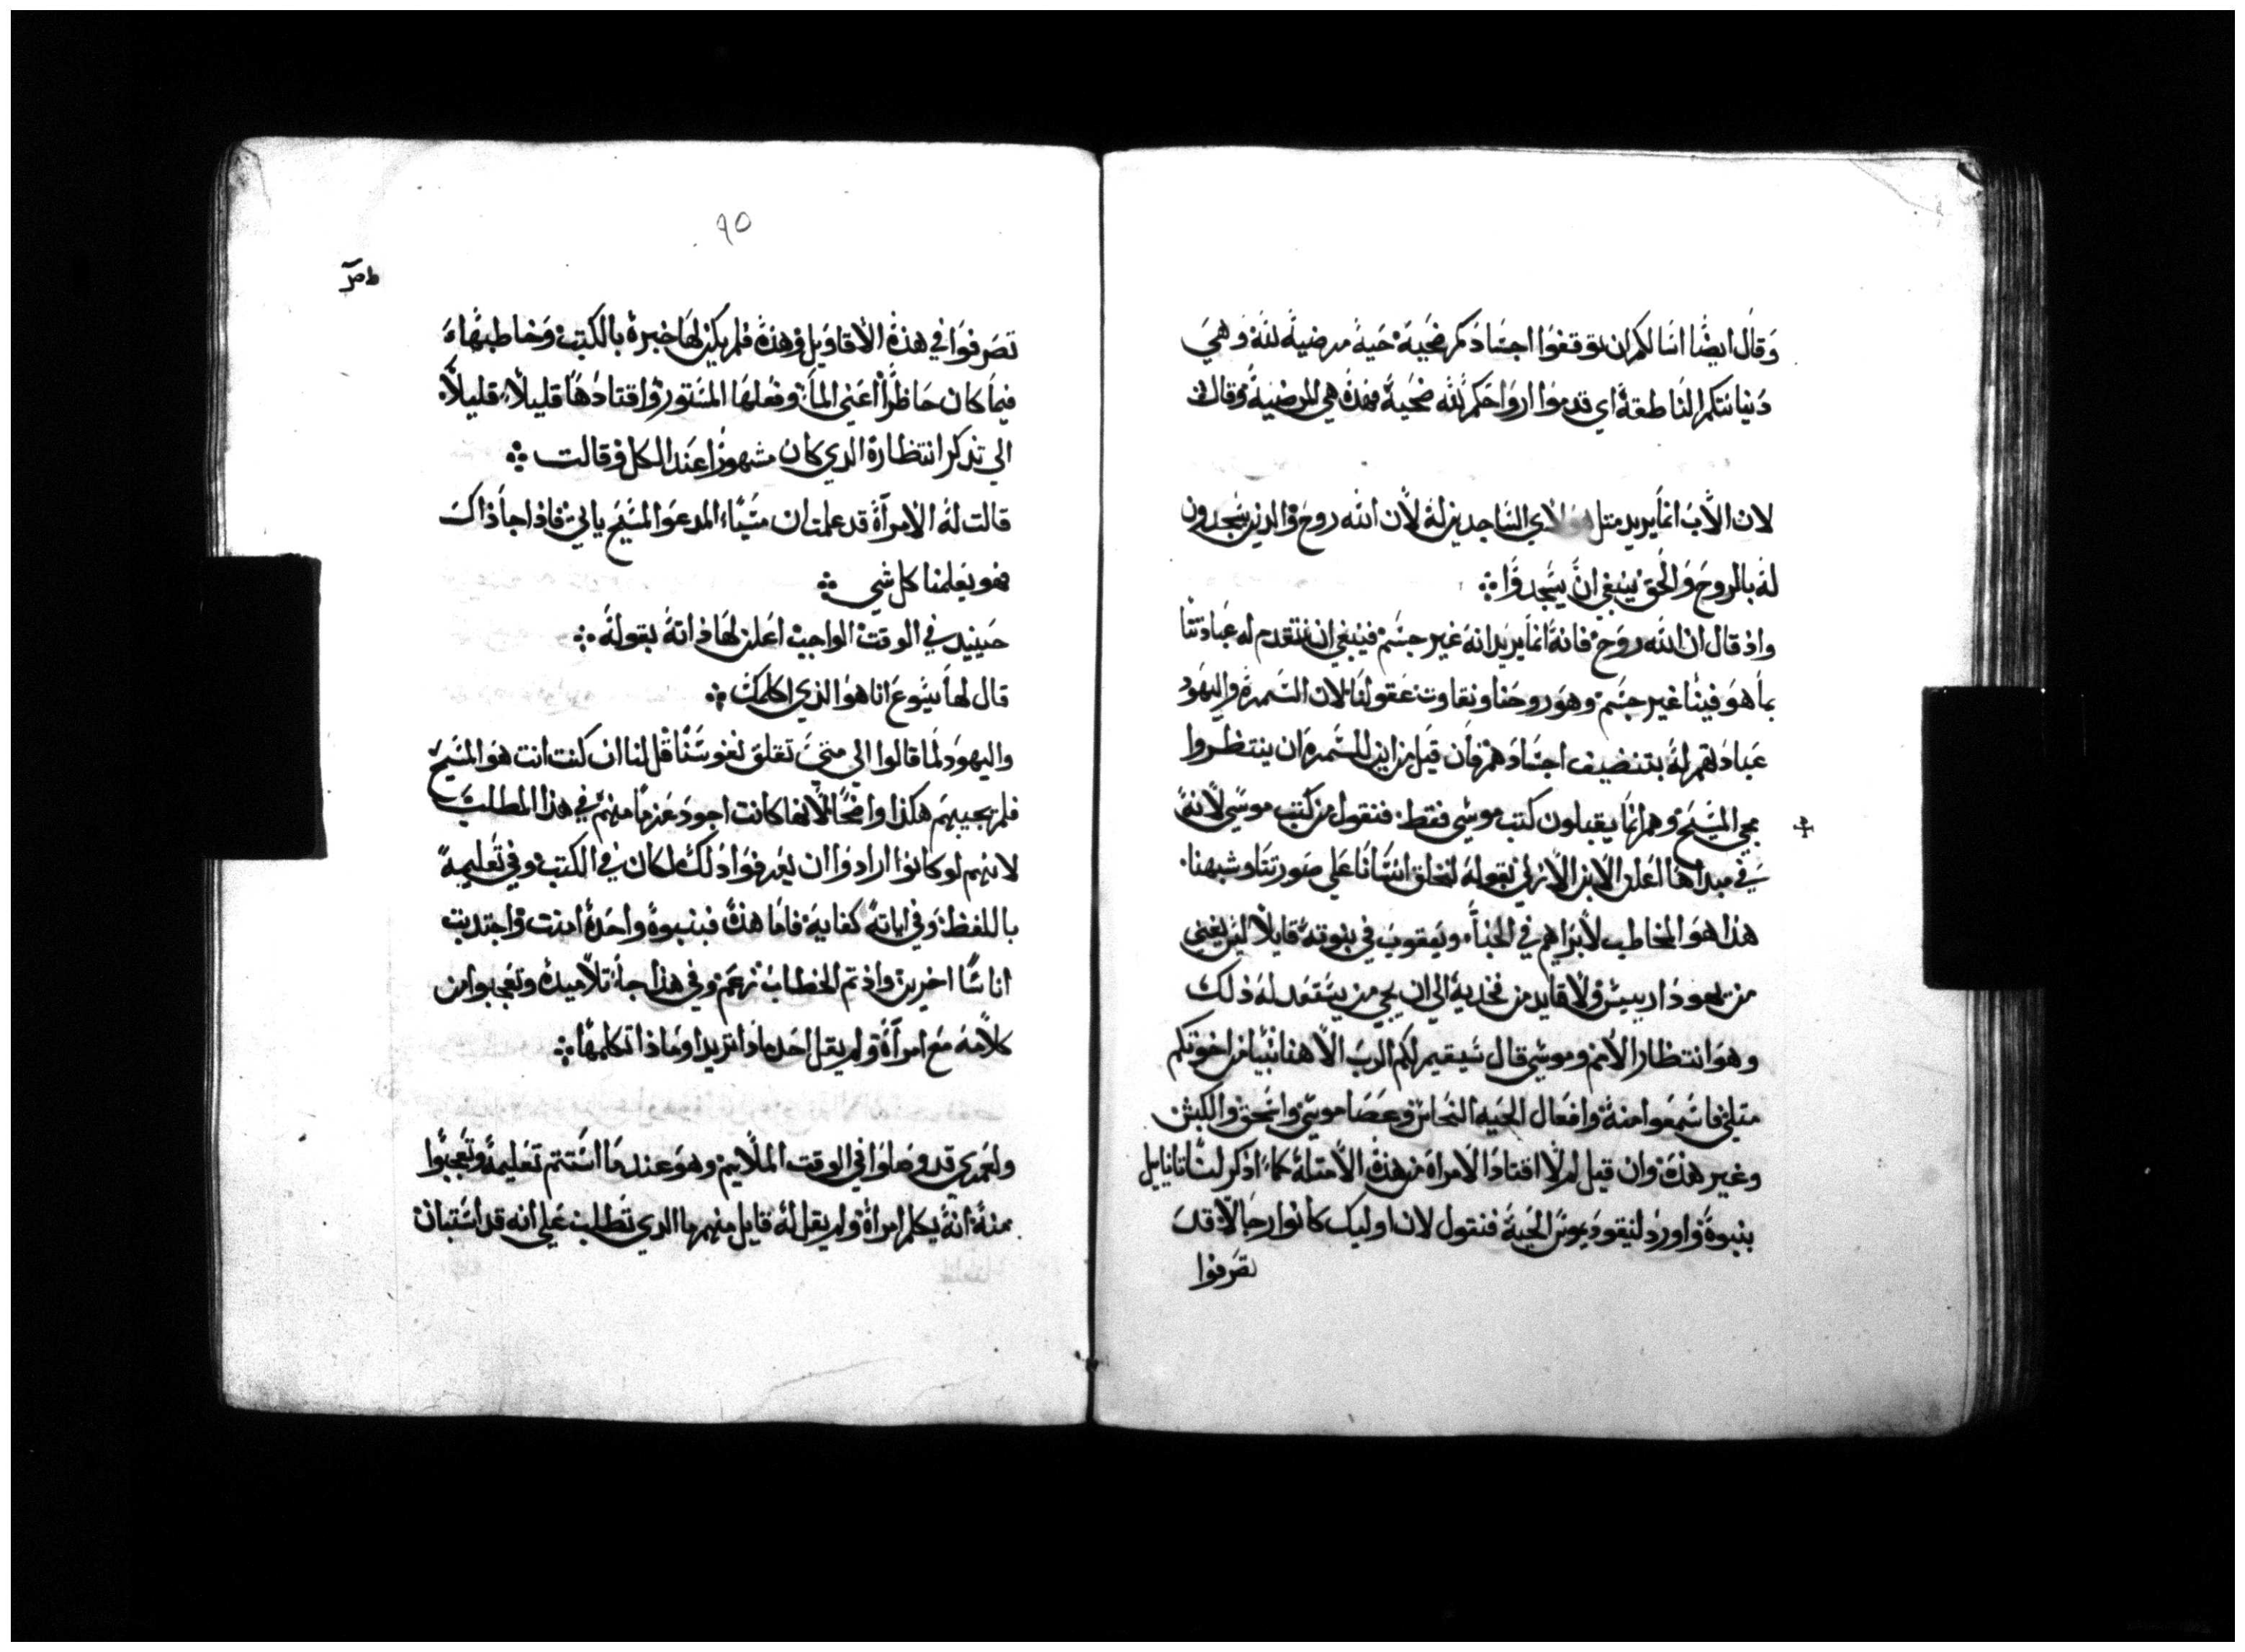 وقال ايضًا اسالكم ان توقفوا اجسادكم ضحية حية مرضية لله وهي
ديانتكم الناطقة اي قدموا ارواحكم لله ضحية فهذه هي المرضية وقال
لان الآب انما يريد مثل هولاي الساجدين له لأن الله روح والدين يسجدون
له بالروح والحق ينبغي ان يسجدوا
واذ قال ان الله روح فانه انما يريد انه غير جسم فينبغي ان نتقدم له عبادتنا
بما هو فينا غير جسم وهو روحنا ونقاوة عقولنا لان السمرة واليهود
عبادتهم له بتنضيف اجسادهم فان قيل من اين للسمرة ان ينتظروا
مجي المسيح وهم انما يقبلون كتب موسي فقط فنقول من كتب موسي لانه
في مبداها اعلن الابن الازلي بقوله لنخلق انسانًا علي صورتنا وشبهنا
هذا هو المخاطب لابراهيم في الخبأ ويعقوب في بنوته قايلا ليس يفني
من يهودا رييس ولا قايد من فخديه الي ان يجي من يستعد له ذلك
وهو انتظار الأمم وموسي قال سيقيم لكم الرب الاهنا نبيا من اخوتكم
متلي فاسمعوا منه وافعال الحيه النحاس وعصا موسي واسحق والكبش
وغير هذه وان قيل لم لا اقتاد الامراة من هذه الأمتلة كما اذكر لنا تانايل
بنبوة واورد لنيقوديموس الحية فنقول لان اوليك كانوا رجالا قد
تصرفوا
٩٥
تصرفوا في هذه الأقاويل وهذه فلم يكن لها خبرة بالكتب وخاطبها
فيما كان حاظرًا اعني الماء وفعلها المستور واقتادها قليلا قليلا
الي تذكر انتظاره الدي كان مشهورًا عند الكل وقالت
قالت له الامرآة قد علمت ان مسيّا المدعو المسيح ياتي فاذا جا ذاك
فهو يعلمنا كل شي
حينيد في الوقت الواجب اعلن لها ذاته بقوله
قال لها يسوع انا هو الذي اكلمك
واليهود لما قالوا الي متى تقلق نفوسنا قل لنا ان كنت انت هو المسيح
فلم يجيبهم هكذا واضحًا لأنها كانت اجود عزمًا منهم في هذا المطلب
لانهم لو كانوا ارادوا ان يعرفوا دلك لكان في الكتب وفي تعليمه
باللفظ وفي اياته كفاية فاما هذه فبنبوة واحدة امنت واجتدبت
اناسًا اخرين واذ تم الخطاب نزعم وفي هذا جا تلاميده وتعجبوا من
كلامه مع امرآة ولم يقل احد ماذا تريد او ماذا تكلمها
ولعمري قد وصلوا في الوقت الملايم وهو عند ما استتم تعليمه وتعجبوا
منه انه يكلم امرآة ولم يقل له قايل منهم ما الدي تطلب علي انه قد استبان